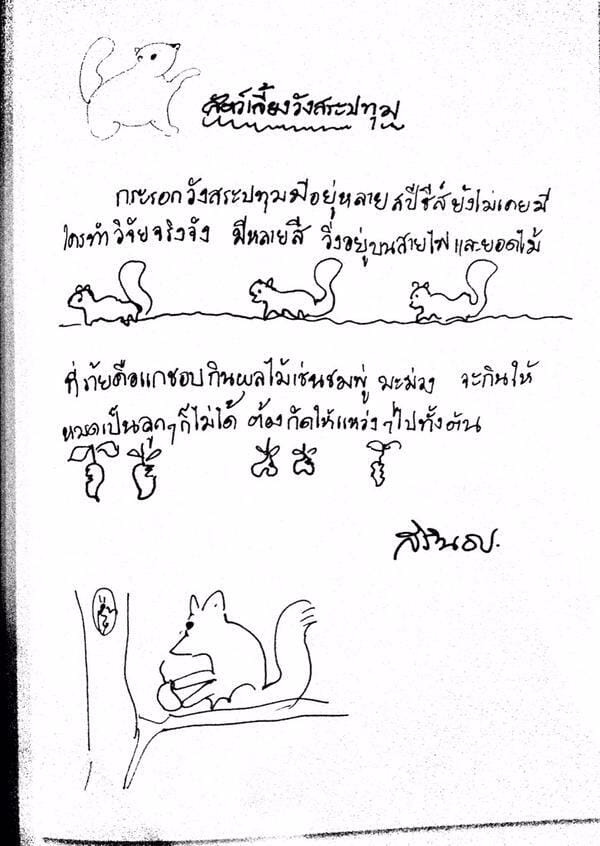 สัตว์เลี้ยงวังสระปทุม
กระรอกวังสระปทุมมีอยู่หลายสปีชีส์ยังไม่เคยมี
ใครทำวิจัยจริงจัง มีหลายสี วิ่งอยู่บนสายไฟและยอดไม้
ที่ร้ายคือแกชอบกินผลไม้เช่นชมพู่ มะม่วง จะกินให้
หมดเป็นลูกๆก็ไม่ได้ ต้องกัดให้แหว่งๆไปทั้งต้น
สิรินธร